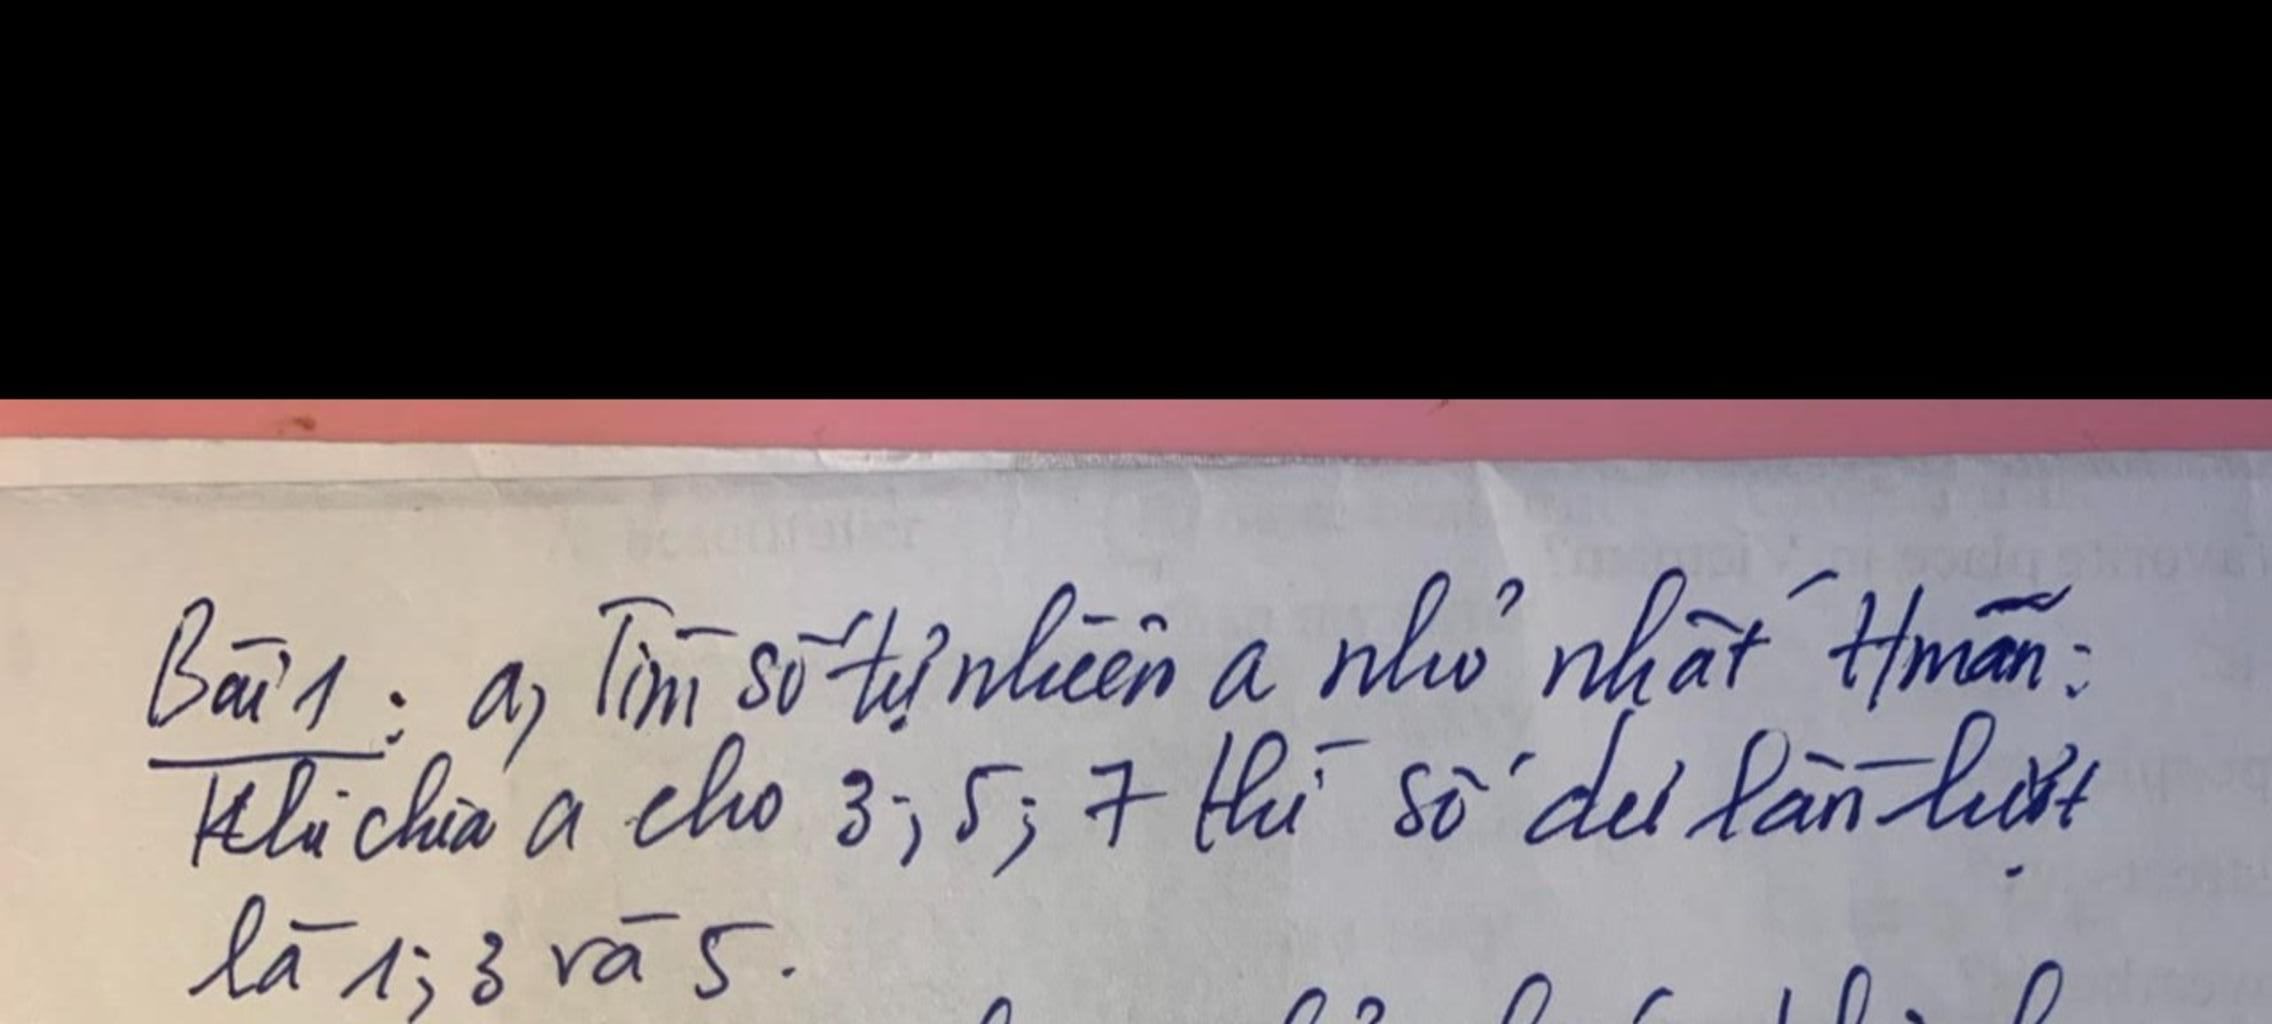 Bài 1: a, Tìm số tự nhiên a nhỏ nhất t/mãn:
Khi chia a cho 3; 5; 7 thì số dư lần lượt
là 1; 3 và 5.